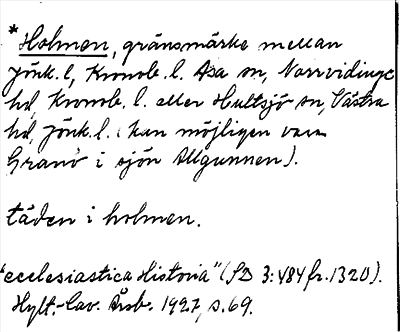 *Holmen, gränsmärke mellan
Jönk. l, Kronob. l. Asa sn, Norrvidinge
hd, Kronob. l. eller Hultsjö sn, Västra
hd, Jönk. l. (kan möjligen vara
Granö i sjön Allgunnen).
täden i holmen.
"ecclesiastica Historia" (SD 3:484 fr. 1320).
Hylt.-Cav. Årsb. 1927, s. 69.